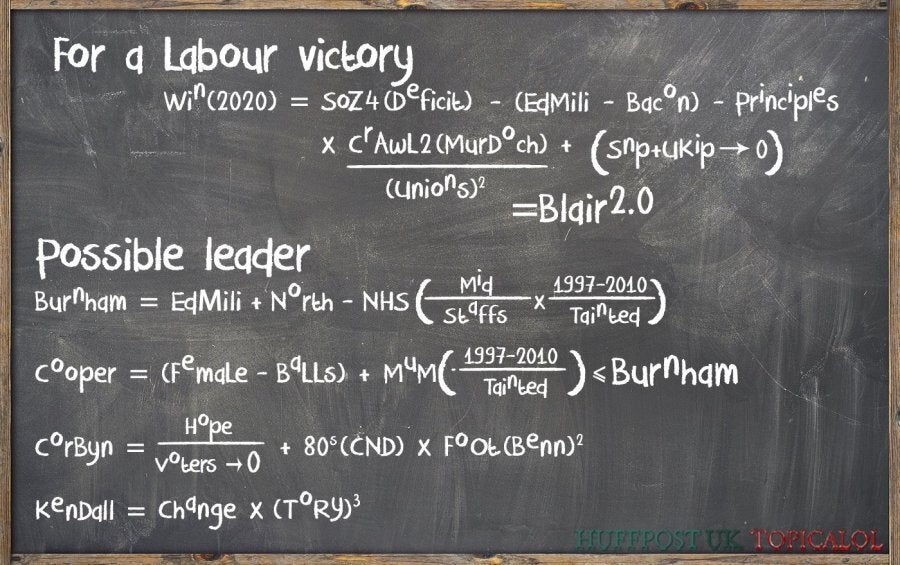 For a Labour victory
Win(2020) = SoZ4(Deficit) - (EdMili - Bacon) - Principles
x CrAwL2(MurDoch) + (Snp+UKip→0)
(Unions)²
=Blair2.0
Possible leader
Burnham = EdMili + North - NHS(Mid/Staffs x 1997-2010/Tainted)
Cooper = (Female - BaLLs) + MuM(1997-2010/Tainted) ≤ Burnham
CorByn = Hope/Voters→0 + 80s(CND) x FoOt(Benn)²
KenDall = Change x (ToRy)³
HUFFPOST UK TOPICALOL